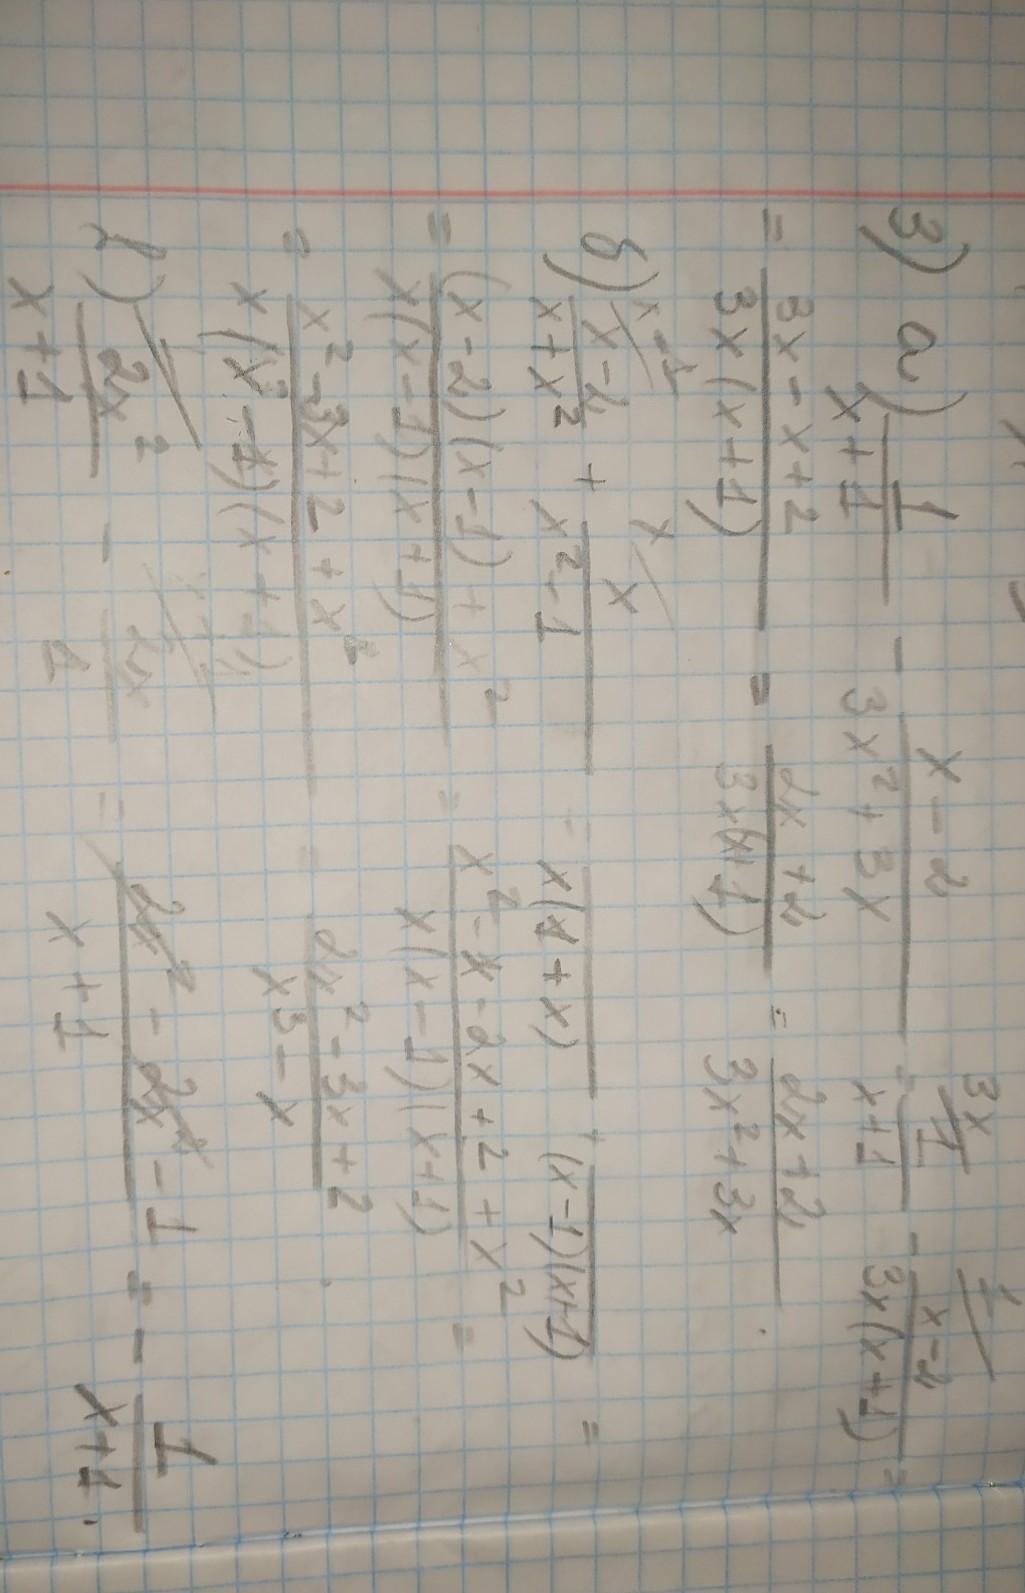 3) a) 1/(x+1) - (x-2)/(3x²+3x) = 3x/ 1/(x+1) - 1/ (x-2)/(3x(x+1)) =
= (3x-x+2)/(3x(x+1)) = (2x+2)/(3x(x+1)) = (2x+2)/(3x²+3x).
б) x-1/ (x-2)/(x+x²) + x/ x/(x²-1) = /(x(1+x)) + /((x-1)(x+1)) =
= ((x-2)(x-1)+x²)/(x(x-1)(x+1)) = (x²-x-2x+2+x²)/(x(x-1)(x+1)) =
= (x²-3x+2+x²)/(x(x²-1)(x+1)) = (2x²-3x+2)/(x³-x).
в) 2x²/(x+1) - 2x/1 = (2x²-2x²-1)/(x+1) = -1/(x+1).